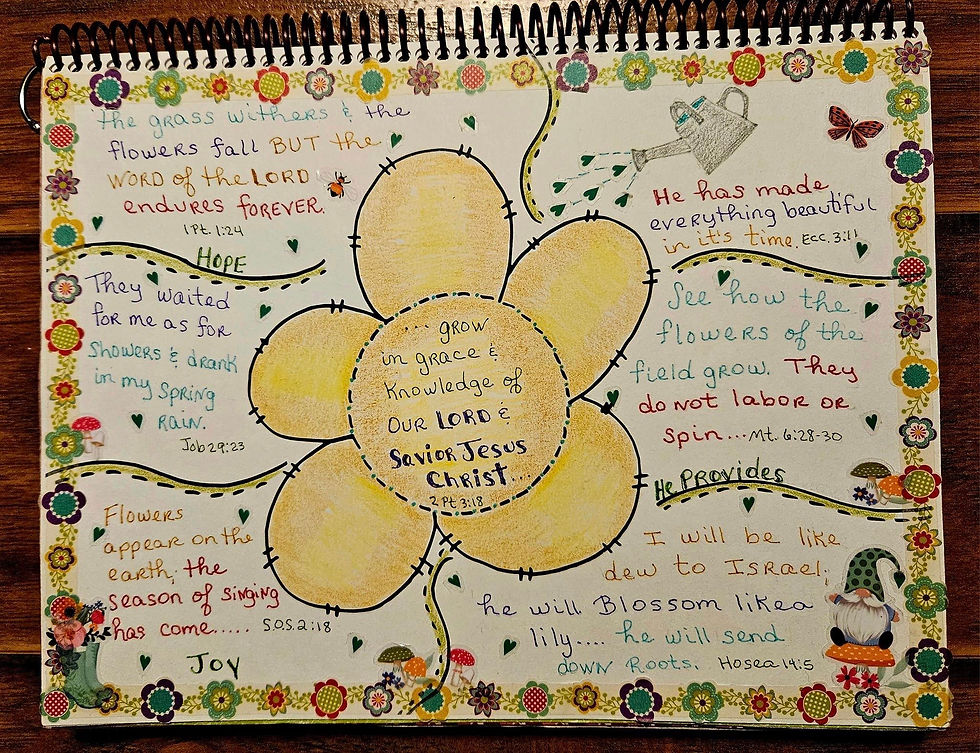 the grass withers & the
flowers fall BUT the
WORD of the LORD
endures FOREVER.
1 Pt. 1:24
HOPE
They waited
for me as for
showers & drank
in my spring
rain.
Job 29:23
Flowers
appear on the
earth; the
season of singing
has come.....
S.O.S. 2:18
Joy
... grow
in grace &
knowledge of
our LORD &
Savior Jesus
Christ...
2 Pt 3:18
He has made
everything beautiful
in it's time. Ecc. 3:11
See how the
flowers of the
field grow. They
do not labor or
spin... Mt. 6:28-30
He PROVIDES
I will be like
dew to Israel;
he will Blossom like a
lily.... he will send
down Roots. Hosea 14:5